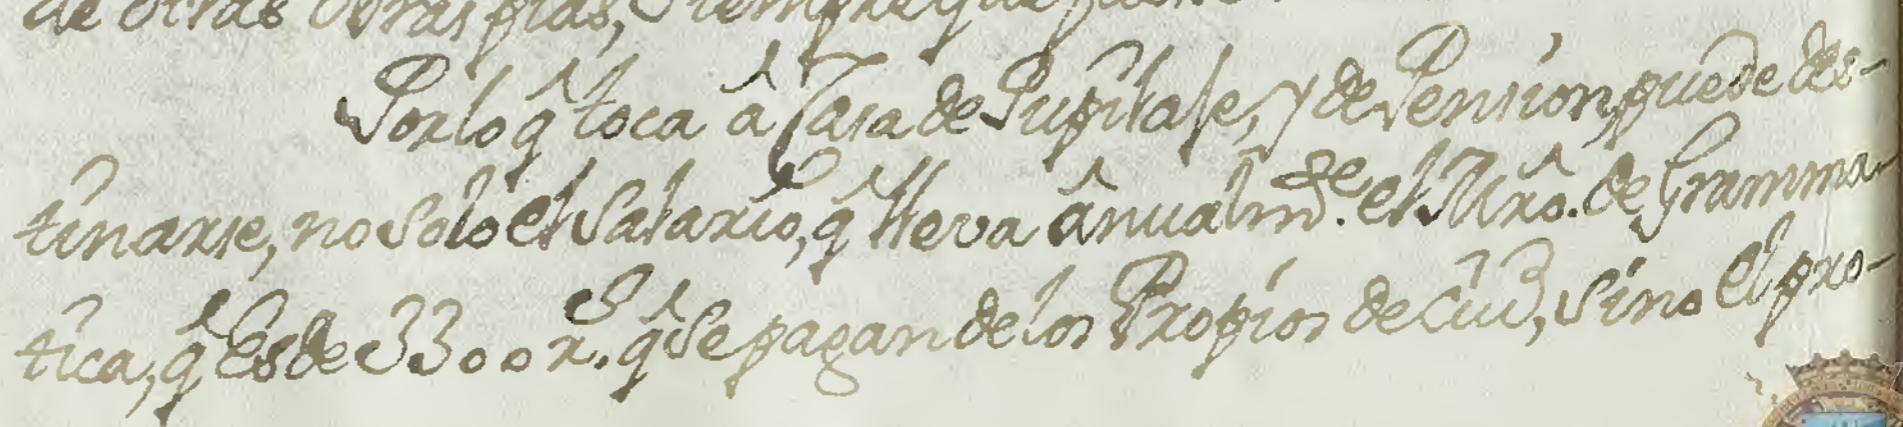 de otras obras pias, siempre que
Por lo q̂ toca â Casa de Pupilaje, y de Pension, puede des-
tinarse, no solo el salario, q̂ lleva ânualmᵈᵉ. el Mr̂o. de Gramma-
tica, q̂ Es de 3300 rˢ. q̂ se pagan de los Propios de Ciud, sino el pro-